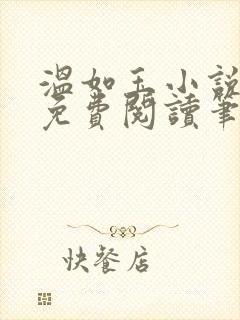 溫如玉小說
免費閱讀筆
快餐店